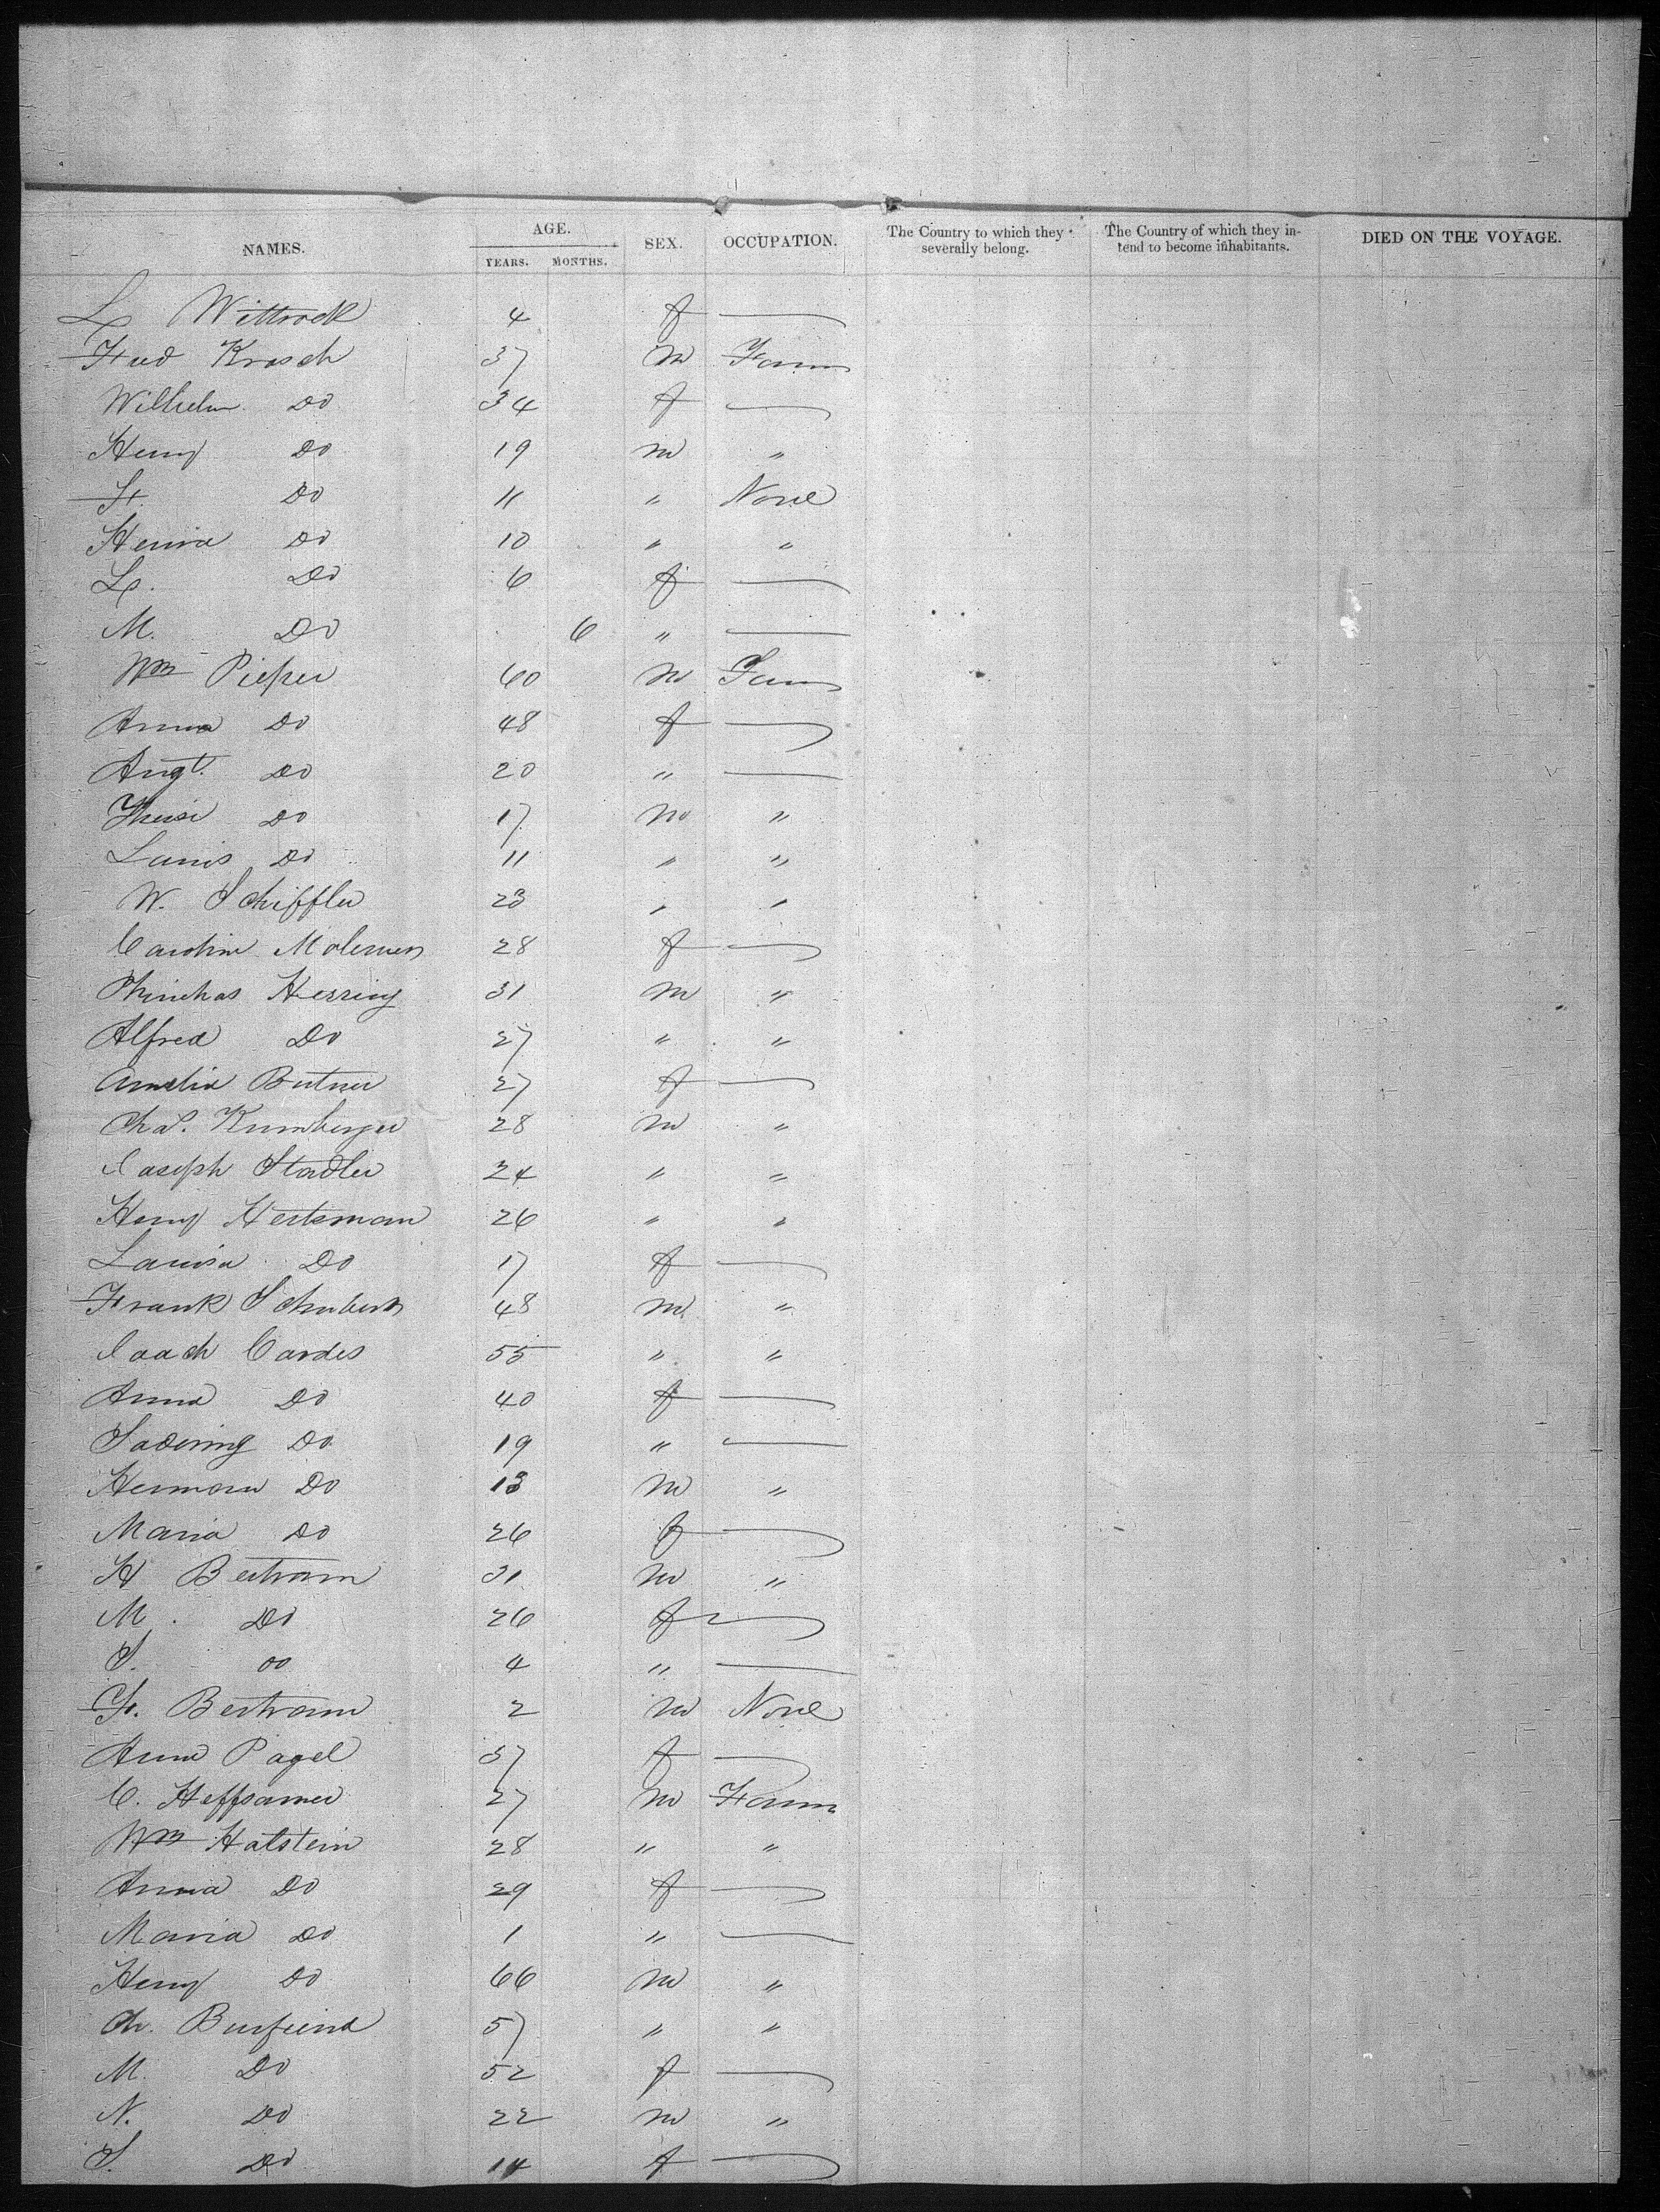 NAMES. AGE. SEX. OCCUPATION. The Country to which they severally belong. The Country of which they intend to become inhabitants. DIED ON THE VOYAGE.
YEARS. MONTHS.
L Wittrock 4 f —
Fred Krosch 37 m Farm
Wilhelm Do 34 f —
Henry Do 19 m "
F. Do 11 " None
Do 10 " "
L. Do 6 f —
M. Do 6 " —
Wm Pieper 60 m Farm
Anna Do 48 f —
Augt. Do 20 " —
Do 17 m "
Louis Do 11 " "
W. Schiffler 23 " "
Caroline 28 f —
Phinehas Herring 31 m "
Alfred Do 27 " "
Amelia Butner 27 f —
Chas. Kurnberger 28 m "
Joseph Stadler 24 " "
Henry Hertsman 26 " "
Louisa Do 17 f —
Frank Schubert 48 m "
Cordes 55 " "
Anna Do 40 f —
Do 19 " —
Hermann Do 13 m "
Maria Do 26 f —
H Bertram 31 m "
M. Do 26 f —
S. Do 4 " —
F. Bertram 2 m None
Anna Pagel 37 f —
C. 27 m Farm
Wm Hatstein 28 " "
Anna Do 29 f —
Maria Do 1 " —
Henry Do 66 m "
Ch. Burfeind 57 " "
M. Do 52 f —
N. Do 22 m "
S. Do 14 f —